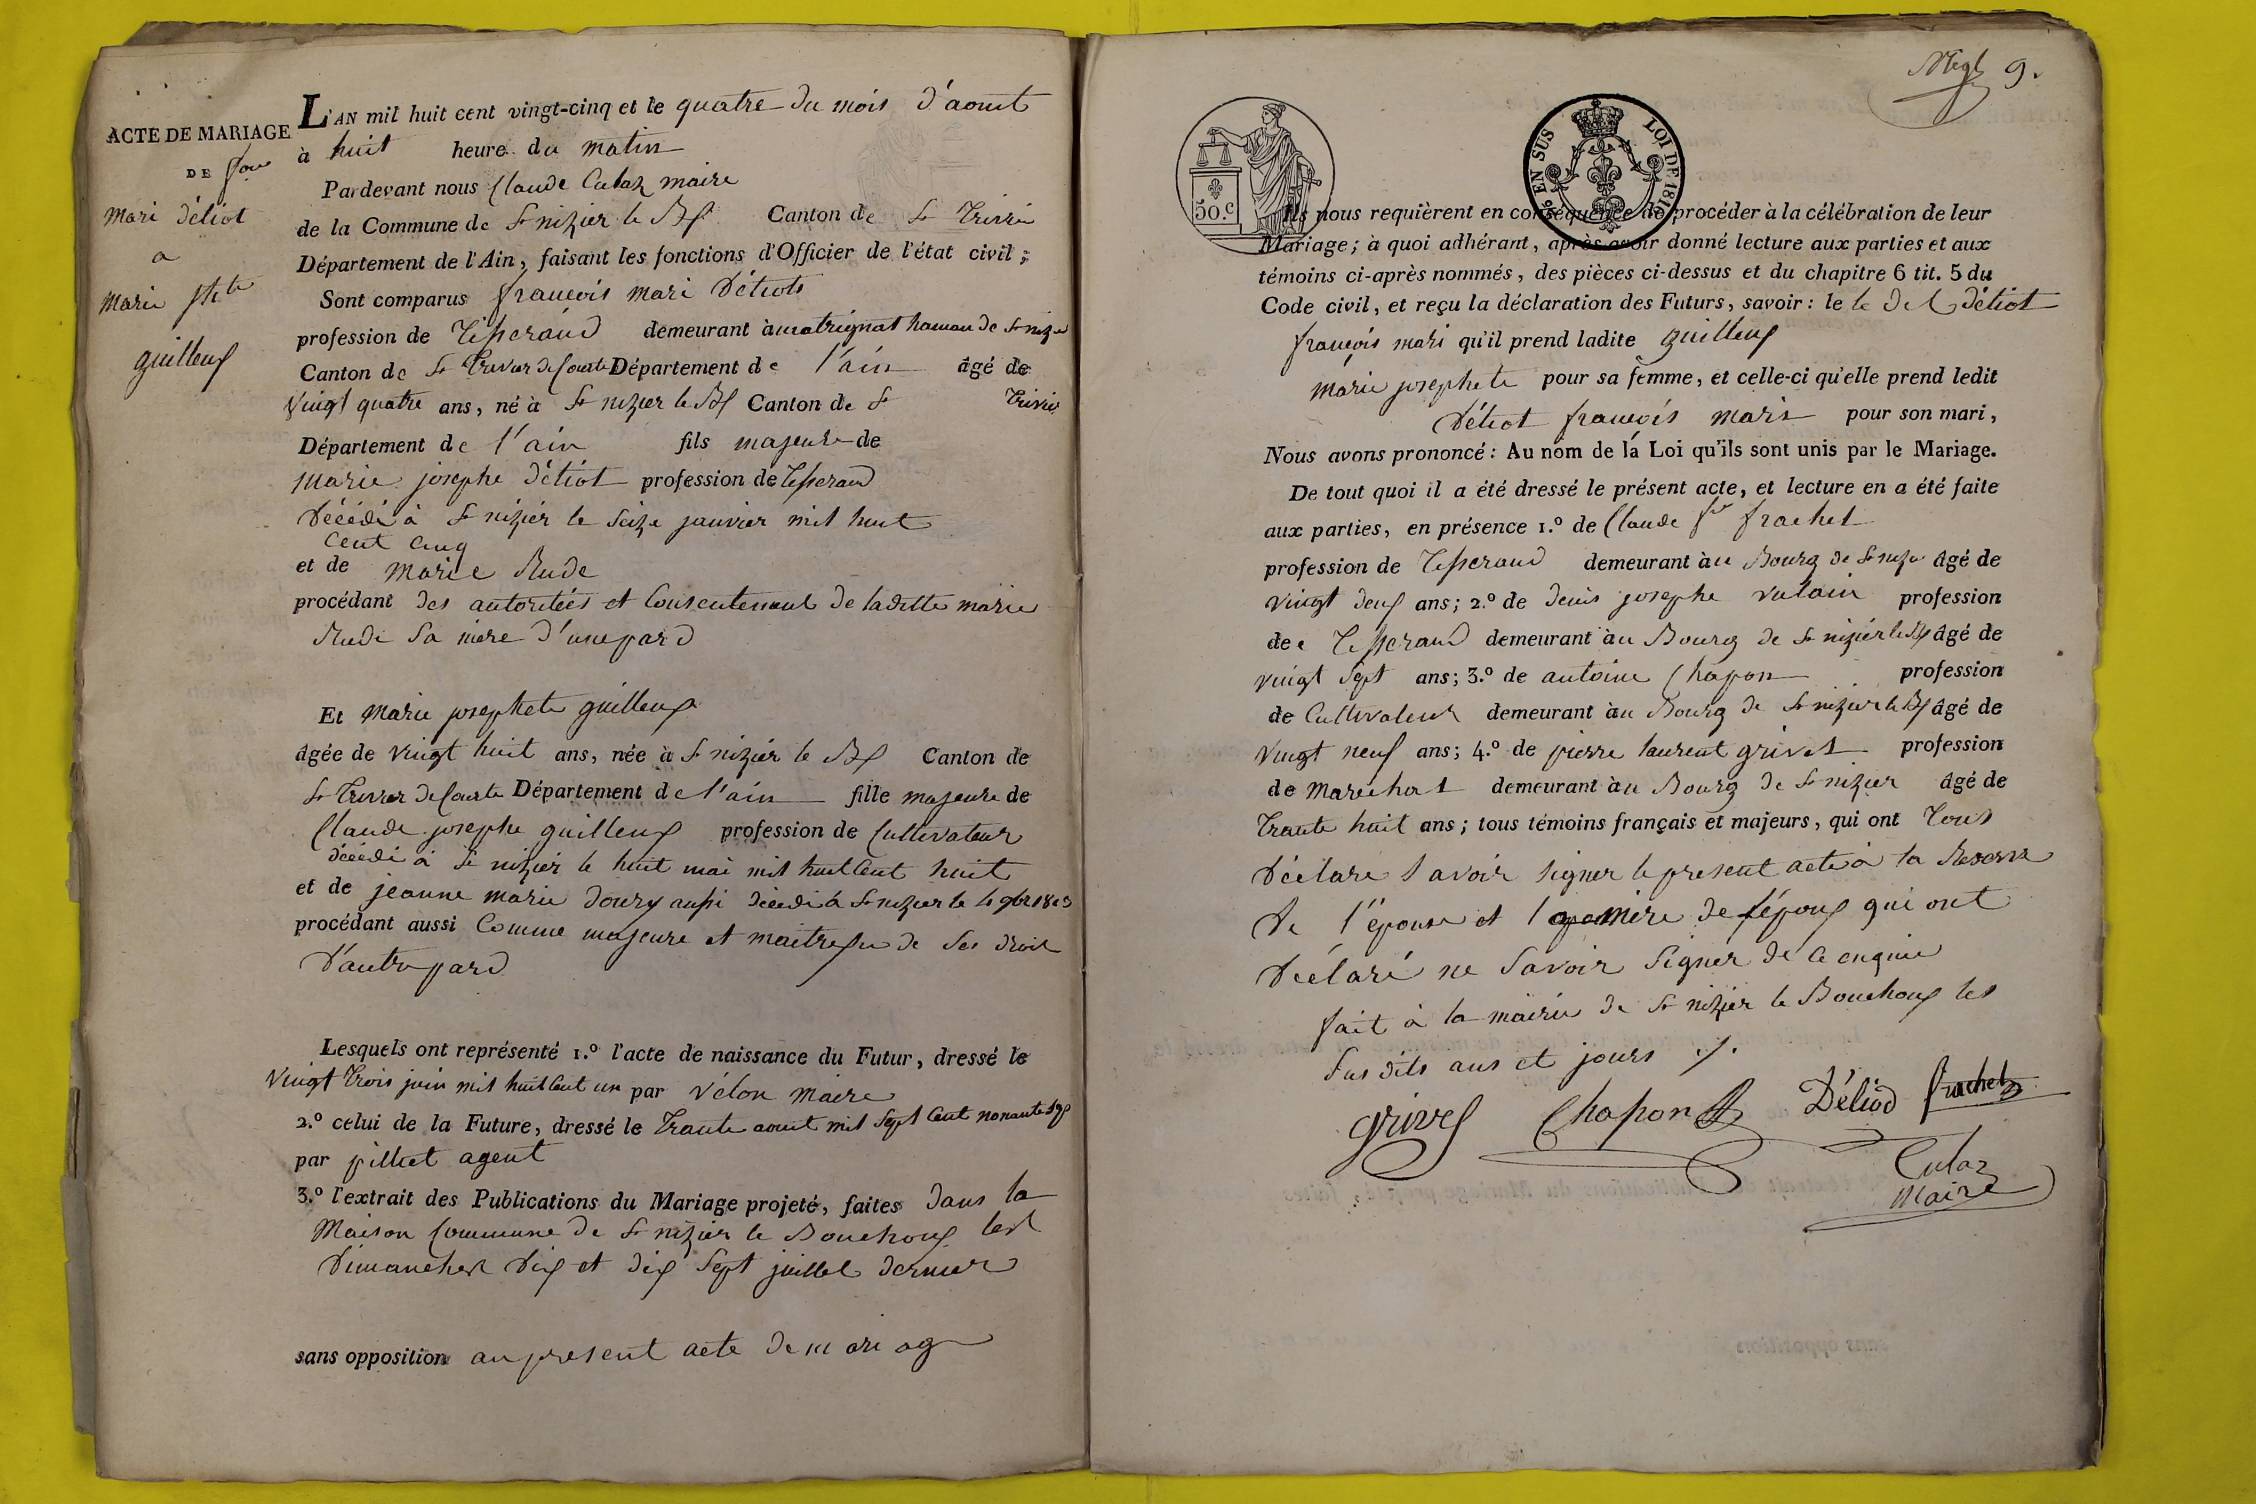 ACTE DE MARIAGE
DE
mari Déliot
a
marie
guilleux
L'AN mil huit cent vingt-cinq et le quatre du mois d'aout
à huit heure du matin
Pardevant nous Claude Cabaz maire
de la Commune de St nizier le Bx Canton de St Trivie
Département de l'Ain, faisant les fonctions d'Officier de l'état civil;
Sont comparus françois mari Détiots
profession de Tisserand demeurant à hamau de St nizier
Canton de St Trivier de Courte Département de l'ain âgé de
vingt quatre ans, né à St nizier le Bx Canton de St Trivie
Département de l'ain fils majeure de
marie josephe détiot profession de tisserand
Décédé à St nizier le seize janvier mil huit
cent cinq
et de marie Rude
procédant des autoritées et Consentement de laditte marie
Rude sa mere d'une pard
Et marie josephete guilleux
âgée de vingt huit ans, née à St nizier le Bx Canton de
St Trivier de Courte Département de l'ain fille majeure de
Claude josephe guilleux profession de Cultivateur
décédé à St nizier le huit mai mil huit Cent huit
et de jeanne marie doury aussi décédé à St nizier le 4 9bre 1813
procédant aussi Comme majeure et maitresse de ses droit
D'autre pard
Lesquels ont représenté 1.º l'acte de naissance du Futur, dressé le
vingt trois juin mil huit Cent un par vélon maire
2.º celui de la Future, dressé le Trante aout mil sept Cent nonante sept
par pilliet agent
3.º l'extrait des Publications du Mariage projeté, faites dans la
Maison Commune de St nizier le Bouchoux les
Dimanches dix et dix sept juillet dernier
sans opposition au present acte de mariage
9.
50.c
EN SUS
LOI DE 1816
Ils nous requièrent en conséquence de procéder à la célébration de leur
Mariage; à quoi adhérant, après avoir donné lecture aux parties et aux
témoins ci-après nommés, des pièces ci-dessus et du chapitre 6 tit. 5 du
Code civil, et reçu la déclaration des Futurs, savoir: le le dit détiot
françois mari qu'il prend ladite guilleux
marie josephete pour sa femme, et celle-ci qu'elle prend ledit
Détiot françois mari pour son mari,
Nous avons prononcé: Au nom de la Loi qu'ils sont unis par le Mariage.
De tout quoi il a été dressé le présent acte, et lecture en a été faite
aux parties, en présence 1.º de Claude frachet
profession de tisserand demeurant au Bourg de St nizier âgé de
vingt deux ans; 2.º de denis josephe profession
de Tisserand demeurant au Bourg de St nizier le Bx âgé de
vingt sept ans; 3.º de antoine Chapon profession
de Cultivateur demeurant au Bourg de St nizier le Bx âgé de
vingt neuf ans; 4.º de pierre laurent grivet profession
de marechal demeurant au Bourg de St nizier âgé de
Trante huit ans; tous témoins français et majeurs, qui ont Tous
déclare savoir signer le present acte à la Reserve
de l'épouse et la mère de l'époux qui ont
Déclaré ne savoir signer de ce enquie
fait à la mairie de St nizier le Bouchoux les
sus dits ans et jours ./.
grivel Chapon Déliod frachet
Cabaz
Maire